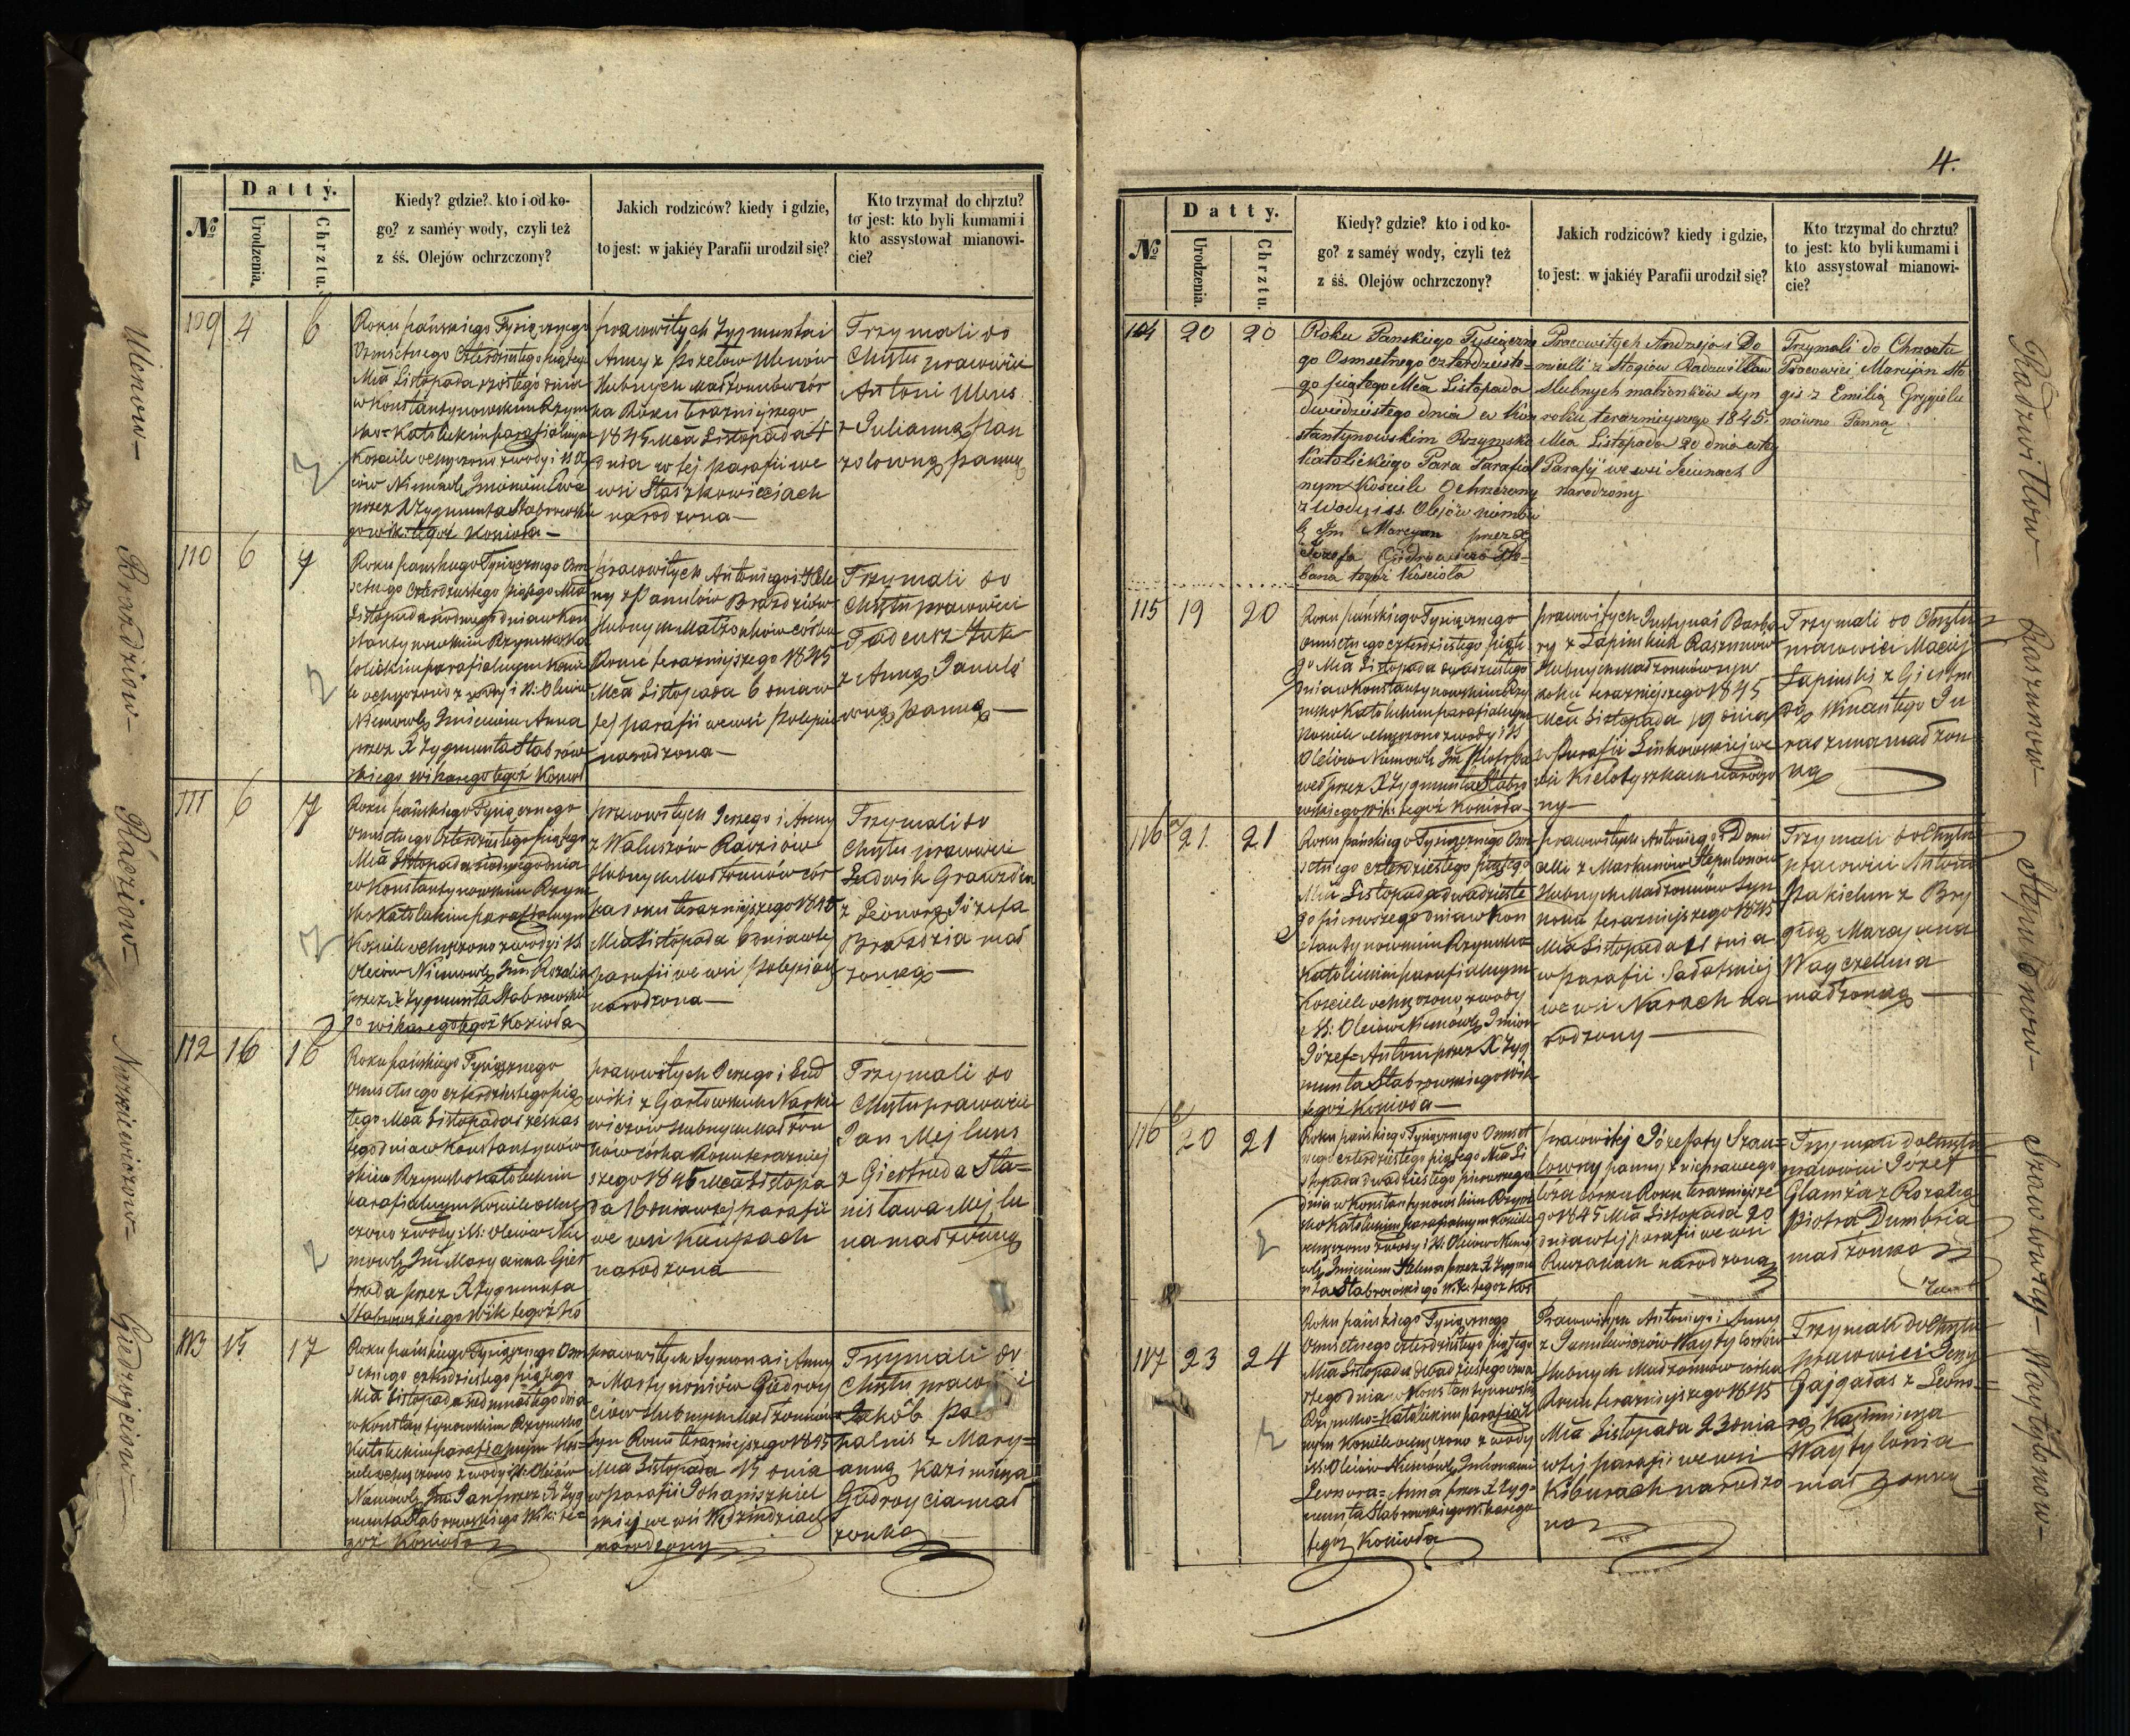 Datty.
№
Urodzenia.
Chrztu.
Kiedy? gdzie? kto i od ko-
go? z saméy wody, czyli też
z śś. Olejów ochrzczony?
Jakich rodziców? kiedy i gdzie,
to jest: w jakiéy Parafii urodził się?
Kto trzymał do chrztu?
to jest: kto byli kumami i
kto assystował mianowi-
cie?
109
4
6
Roku pańskiego Tysiącznego
Osmsetnego Czterdziestego piątego
Mca Listopada szóstego dnia
w Konstantynowskim Rzym
sko-Katolickim parafialnym
przez X Zygmunta Stabrowskie
go wik: tegoż Kościoła—
pracowitych Zygmunta i
Anny z Pozelow Ulenow
ślubnych Małżonków cór
ka Roku teraznijszego
1845 Mca Listopada 4
dnia w tej parafii we
wsi Staszkowiciach
narodzona—
Trzymali do
Chrztu pracowici
Antoni Ulens
110
6
7
Roku pańskiego Tysiącznego Osm
setnego Czterdziestego piątego Mca
Niemowle Imieniem Anna
przez X Zygmunta Stabrow
skiego wikarego tegoż Kościoł
pracowitych Antoniego i Hele
ny z Panulow Brazdziow
ślubnych Małżonków córka
Roku teraznijszego 1845
Mca Listopada 6 dnia w
tej parafii we wsi Polepie
narodzona—
Trzymali do
Chrztu pracowici
z Anną Panulo
wną panną—
111
6
7
Roku pańskiego Tysiącznego
Osmsetnego Czterdziestego piątego
Mca Listopada siódmego dnia
w Konstantynowskim Rzym
sko Katolickim parafialnym
Kościele ochrzczono z wody i SS.
Oleiow Niemowle Im: Rozalia
przez X Zygmunta Stabrowskie
go wikarego tegoż Kościoła
pracowitych Jerzego i Anny
z Waluszów Racziow
ślubnych Małżonków cór
ka roku teraznijszego 1845
Mca Listopada 6 dnia w tej
parafii we wsi Polepiach
narodzona—
Trzymali do
Chrztu pracowici
z Leonorą Józefa
Brazdzia mał
żonką—
112
16
16
Roku pańskiego Tysiącznego
Osmsetnego czterdziestego pią
tego Mca Listopada szesnas
tego dnia w Konstantynow
skim Rzymsko Katolickim
parafialnym Kościele ochrz
czono z wody i SS: Oleiow Nie
mowle Im: Maryanna Giert
ruda przez X Zygmunta
Stabrowskiego Wik tegoż Ko
pracowitych Jerzego i Lud
wiki z Garlowskich Narkie
wiczow ślubnych Małżon
ków córka Roku teraznij
szego 1845 Mca Listopa
da 16 dnia w tej parafii
we wsi Kiupach
narodzona
Trzymali do
Chrztu pracowici
Jan Mejluns
z Giertruda Sta=
nisława Mejlu
na małżonką
113
15
17
Roku pańskiego Tysiącznego Osm
setnego czterdziestego piątego
Mca Listopada siedmnastego dnia
w Konstantynowskim Rzymsko
Katolickim parafialnym Koś
ciele ochrzczono z wody i SS: Oleiów
Niemowle Im: Jan przez X Zyg
munta Stabrowskiego Wik: te=
goż Kościoła
pracowitych Symona i Anny
z Martynoniów Giedroy
ciów ślubnych Małżonków
syn Roku teraznijszego 1845
Mca Listopada 15 dnia
w parafii Johaniszkiel
skiej we wsi
narodzony
Trzymali do
Chrztu
Jakób
z Mary=
anną Kazimierza
Giedroycia mał
żonką
Ulenow—
Brazdziow—
Racziow—
Narkiewiczow—
Giedroyciow—
4.
Datty.
№
Urodzenia.
Chrztu.
Kiedy? gdzie? kto i od ko-
go? z saméy wody, czyli też
z śś. Olejów ochrzczony?
Jakich rodziców? kiedy i gdzie,
to jest: w jakiéy Parafii urodził się?
Kto trzymał do chrztu?
to jest: kto byli kumami i
kto assystował mianowi-
cie?
114
20
20
Roku Panskiego Tysiączne
go Osmsetnego czterdzieste-
go piątego Mca Listopada
dwudziestego dnia w Kon
stantynowskim Rzymsko
Katolickiego Para Parafial
nym Kościele Ochrzczony
z Wody i ss. Olejów niemow
lę Im Marcyan przez X
Józefa
bana tegoż Kościoła
Pracowitych Andrzeja i Do
micelli z Stogiow Radzwiłłow
ślubnych małżonków syn
roku teraznieyszego 1845.
Mca Listopada 20 dnia w tey
Parafij we wsi Jciunach
narodzony
Trzymali do Chrzestu
Pracowici Marcijan Sto
gis z Emilią Grygielu
nówno Panną
115
19
20
Roku pańskiego Tysiącznego
Osmsetnego czterdziestego piąte
go Mca Listopada dwudziestego
dnia w Konstantynowskim Rzy
msko Katolickim parafialnym
Kościele ochrzczono z wody i SS
Oleiów Niemowle Im Piotr Pa
weł przez X Zygmunta Stabro
wskiego Wik: tegoż Kościoła—
pracowitych Justyna i Barba
ry z Łapinskich Raszunow
ślubnych Małżonków syn
Roku teraznijszego 1845
Mca Listopada 19 dnia
w Parafii Linkowskiej we
wsi Kiełotyszkach narodzo
ny—
Trzymali do Chrztu
pracowici Maciej
Łapinski z Giertru
dą Wincentego Ju
raszuna małżon
ką
116 a/
21.
21
Roku pańskiego Tysiącznego Osm
setnego czterdziestego piątego
Mca Listopada dwudzieste
go pierwszego dnia w Kon
stantynowskim Rzymsko
Katolickim parafialnym
Kościele ochrzczono z wody
i SS: Oleiów Niemowle Imion
Józef=Antoni przez X Zyg
munta Stabrowskiego Wik
tegoż Kościoła—
pracowitych Antoniego i Domi
celli z Markuniów Stepulonow
ślubnych Małżonków syn
roku teraznijszego 1845
Mca Listopada 21 dnia
w parafii Sałatskiej
we wsi Narach na
rodzony—
Trzymali do Chrztu
pracowici Antoni
Pakielun z Bry
gidą Maryana
Wayczelluna
małżonką—
116 b/
20
21
Roku pańskiego Tysiącznego Osmset
nego czterdziestego piątego Mca Li
stopada dwudziestego pierwszego
dnia w Konstantynowskim Rzym
sko Katolickim parafialnym Kościele
ochrzczono z wody i SS: Oleiów Niemo
wlę Imieniem Helena przez X Zygmu
nta Stabrowskiego Wik: tegoż Koś
pracowitej Józefaty Szau=
lowny panny z nieprawego
łoża córka Roku teraznijsze
go 1845 Mca Listopada 20
dnia w tej parafii we wsi
narodzona
Trzymali do Chrztu
pracowici Józef
Glamża z Rozalią
Piotra Dumbria
małżonką
117
23
24
Roku pańskiego Tysiącznego
Osmsetnego czterdziestego piątego
Mca Listopada dwudziestego czwar
tego dnia w Konstantynowskim
Rzymsko=Katolickim parafial
nym Kościele ochrzczono z wody
i SS: Oleiów Niemowle Imionami
Leonora=Anna przez X Zyg=
munta Stabrowskiego Wikarego
tegoż Kościoła
Pracowitych Antoniego i Anny
z Janulewiczów Waytylonow
ślubnych Małżonków córka
Roku teraznijszego 1845
Mca Listopada 23 dnia
w tej parafii we wsi
Kiburach narodzo
na
Trzymali do Chrztu
pracowici Jerzy
Gajgadas z Leono=
rą Kazimierza
Waytylonia
małżonką
Radzwiłłow—
Raszunow—
Stepulonow—
Szawlowny—
Waytylonow—